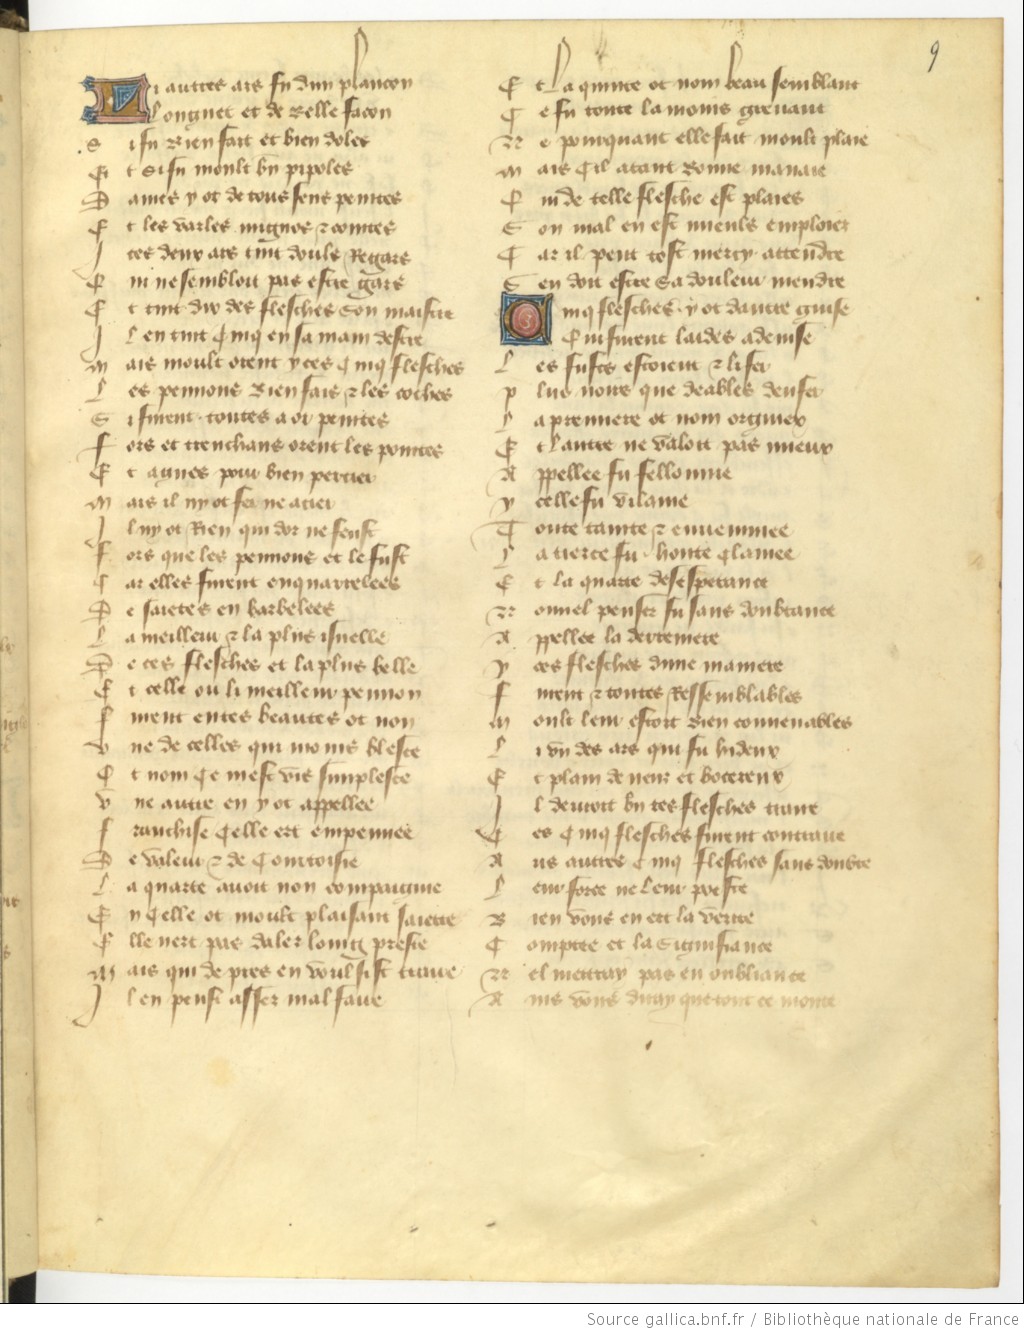 9
Li autres ars fu dun plancon
Longuet et de belle facon
Si fu bien fait et bien doles
Et si fu moult bn pipoles
Dames y ot de tous sens pointes
Et les varles mignos z cointes
Ices deux ars tint douls Regars
Qui ne sembloit pas estre gars
Et tint dix des flesches son maistre
Il en tint cinq en sa main destre
Mais moult orent yces cinq flesches
Les pennons bien fais z les coches
Si furent toutes a or pointes
Fors et trenchans orent les pointes
Et agues pour bien percier
Mais il ny ot fer ne acier
Il ny ot Rien qui dor ne feust
Fors que les pennons et le fust
Car elles furent enquarrelees
De saietes en barbelees
La meilleur z la plus isnelle
De ces flesches et la plus belle
Et celle ou li meilleur pennon
Furent entes beautes ot non
Une de celles qui moins blesce
Et nom ce mest vis simplesce
Une autre en y ot appellee
Franchise celle ert empennee
De valeur z de Courtoisie
La quarte avoit non compaignie
En celle ot moult plaisant saiette
Elle nert pas daler loing preste
Mais qui de pres en voulsist traire
Il en peust asser mal faire
Et la quinte ot nom beau semblant
Ce fu toute la moins grevant
Ne pourquant elle fait moult plaie
Mais cil atant bonne manaie
Qui de telle flesche est plaies
Son mal en est mieuls emploies
Car il peut tost mercy attendre
Sen doit estre sa douleur mendre
Cinq flesches y ot dautre guise
Qui furent laides a devise
Les fusts estoient z li fer
Plus noirs que deables denfer
La premiere ot nom orgueix
Et lautre ne valoit pas mieux
Appellee fu fellonnie
Y celle fu vilaine
Toute tainte z envenimee
La tierce fu honte clamee
Et la quarte desesperance
Nouvel penser fu sans doubtance
Appellee la derreniere
Y ces flesches dune maniere
Furent z toutes Ressemblables
Moult leur estoit bien convenables
Li un des ars qui fu hideux
Et plain de neux et bocereux
Il devoit bn tes flesches traire
Ces cinq flesches furent contraire
Aus autres cinq flesches sans doubte
Leur force ne leur poeste
Bien vous en ert la verite
Comptee et la signifiance
Nel mettray pas en oubliance
Ains vous diray que tout ce monte
Source gallica.bnf.fr / Bibliothèque nationale de France